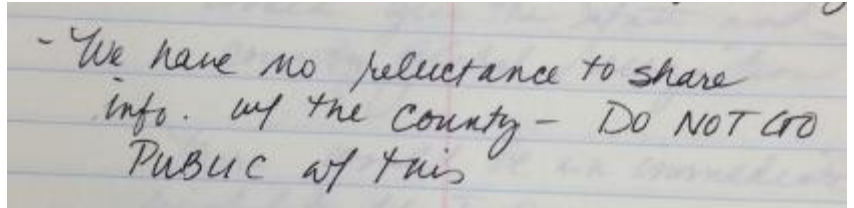 - We have no reluctance to share
info. w/ the County - DO NOT GO
PUBLIC w/ this